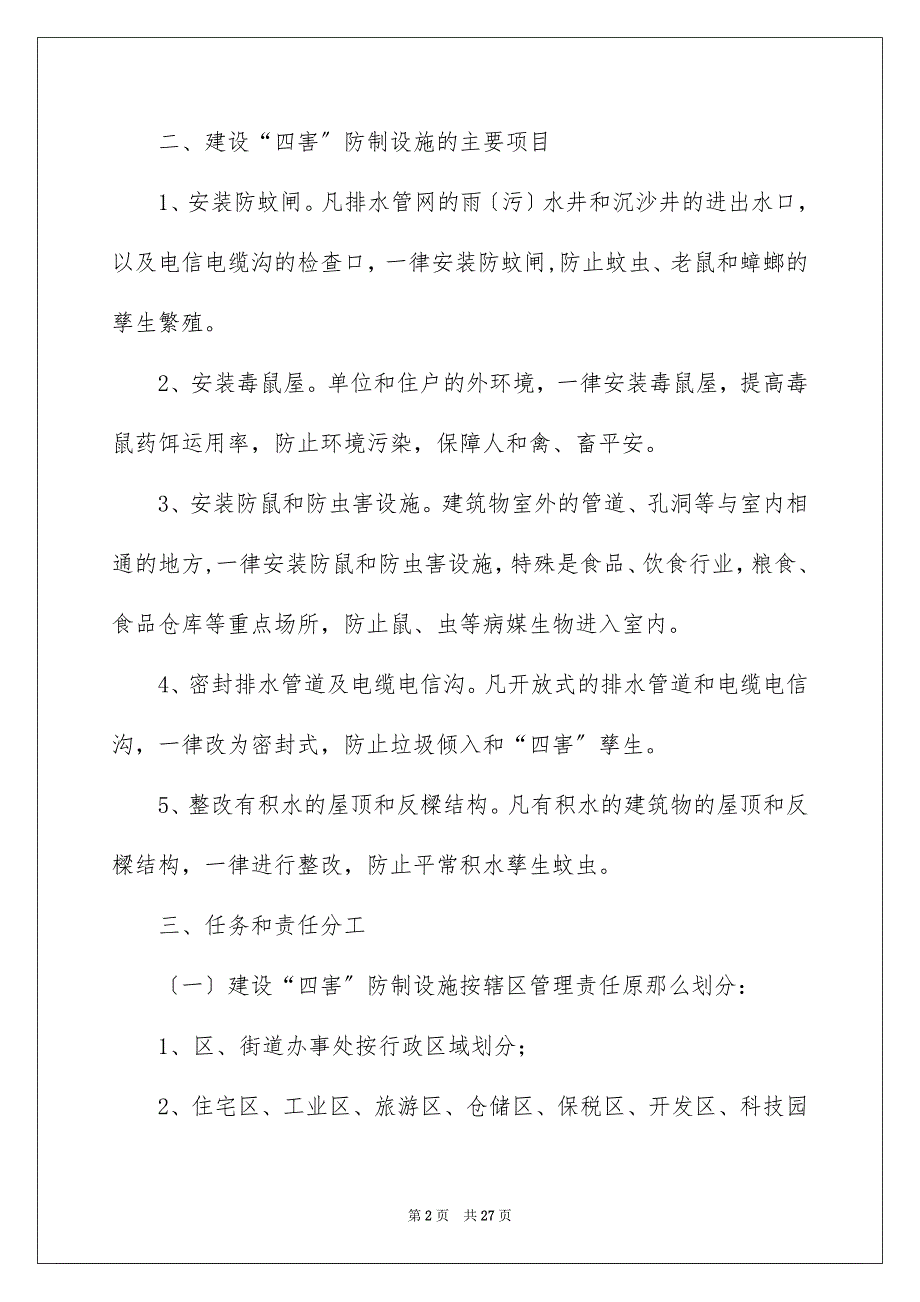 二、建设“四害〞防制设施的主要项目
1、安装防蚊闸。凡排水管网的雨〔污〕水井和沉沙井的进出水口，
以及电信电缆沟的检查口，一律安装防蚊闸,防止蚊虫、老鼠和蟑螂的
孳生繁殖。
2、安装毒鼠屋。单位和住户的外环境，一律安装毒鼠屋，提高毒
鼠药饵运用率，防止环境污染，保障人和禽、畜平安。
3、安装防鼠和防虫害设施。建筑物室外的管道、孔洞等与室内相
通的地方,一律安装防鼠和防虫害设施，特殊是食品、饮食行业，粮食、
食品仓库等重点场所，防止鼠、虫等病媒生物进入室内。
4、密封排水管道及电缆电信沟。凡开放式的排水管道和电缆电信
沟，一律改为密封式，防止垃圾倾入和“四害〞孳生。
5、整改有积水的屋顶和反樑结构。凡有积水的建筑物的屋顶和反
樑结构，一律进行整改，防止平常积水孳生蚊虫。
三、任务和责任分工
〔一〕建设“四害〞防制设施按辖区管理责任原那么划分：
1、区、街道办事处按行政区域划分；
2、住宅区、工业区、旅游区、仓储区、保税区、开发区、科技园
第 2 页 共 27 页